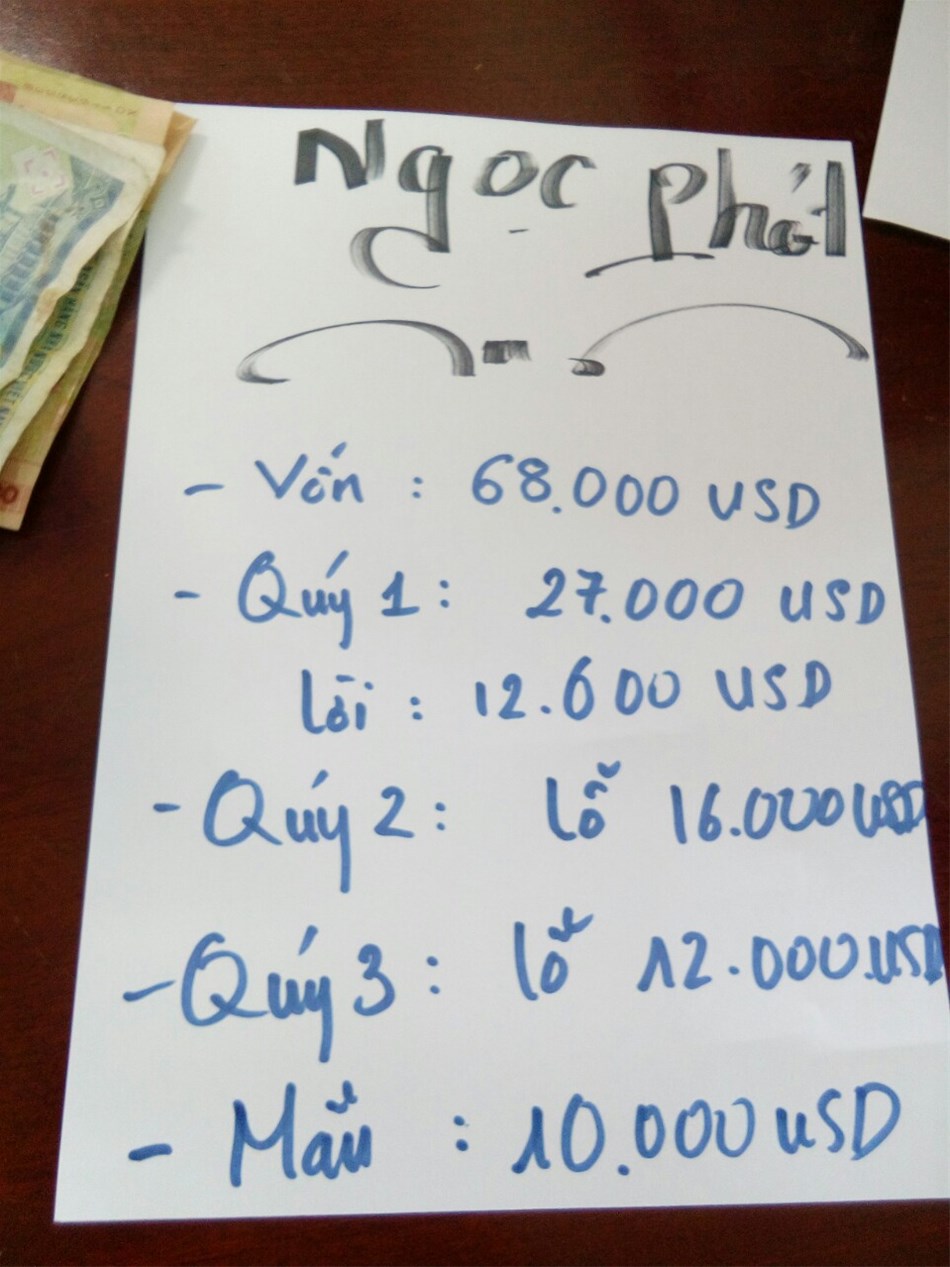 Ngọc Phát
- Vốn : 68.000 USD
- Quý 1 : 27.000 USD
lời : 12.600 USD
- Quý 2 : lỗ 16.000 USD
- Quý 3 : lỗ 12.000 USD
- Mẫu : 10.000 USD